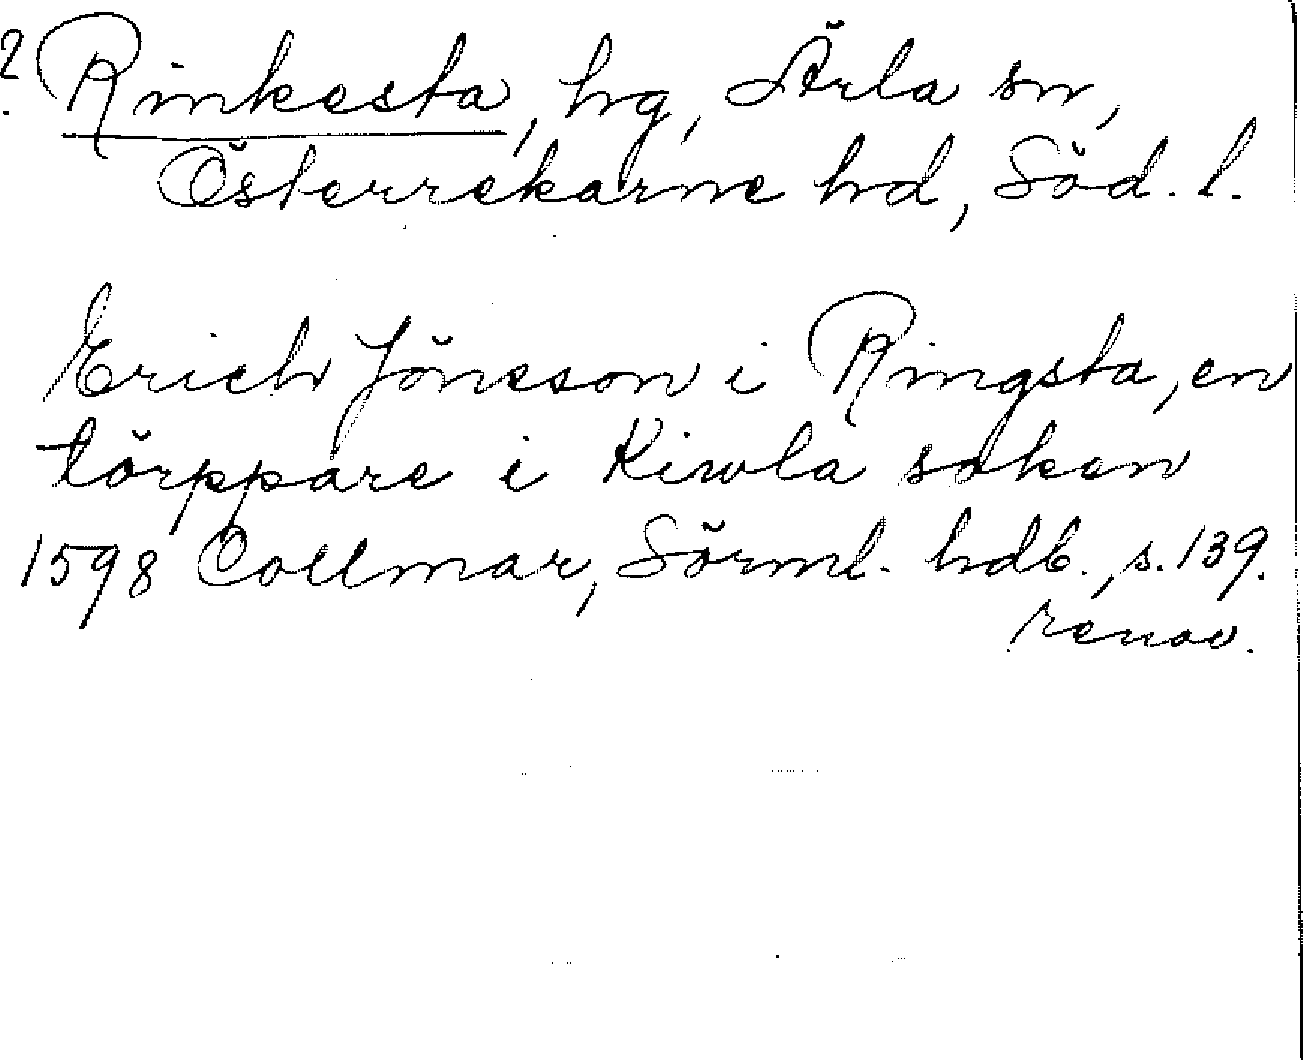 ? Rinkesta, hg, Ärla sn,
Österrekarne hd, Söd. l.
Erich Jönsson i Ringsta, en
törppare i Kiwla soken
1598 Collmar, Sörml. hdb., s. 139.
renov.